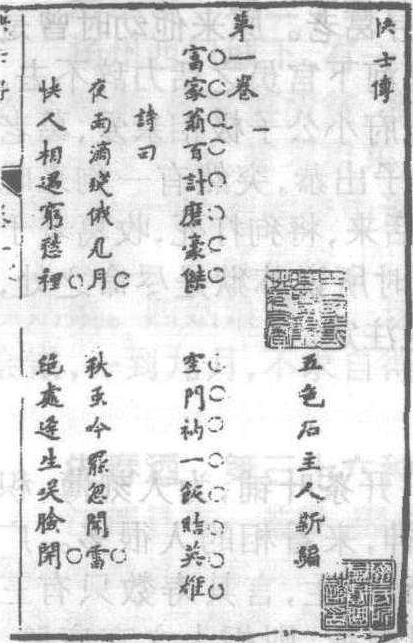 快士傳
五色石主人新編
第一卷
富家翁百計磨豪傑 空門衲一飯晤英雄
詩曰
夜雨滴殘俄見月 秋蛩吟罷忽聞雷
快人相遇窮愁裡 絕處逢生笑臉開